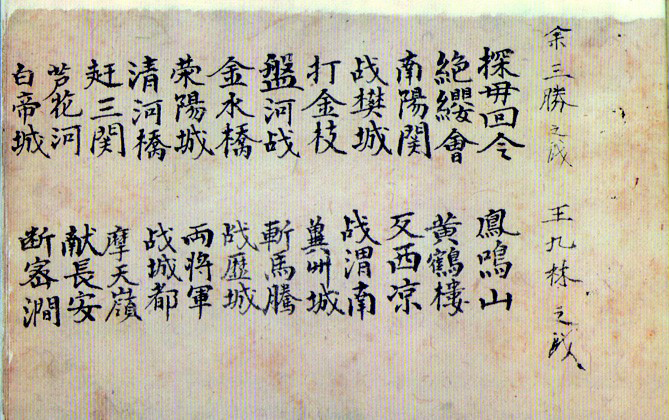 余三勝之戏
王九林之戏
探毋回令
鳳鳴山
絶纓會
黄鶴楼
南陽関
反西凉
战樊城
战渭南
打金枝
冀州城
盤河战
斬馬騰
金水橋
战歷城
荥陽城
両將軍
清河橋
战城都
赶三関
摩天嶺
芦花河
献長安
白帝城
断密澗